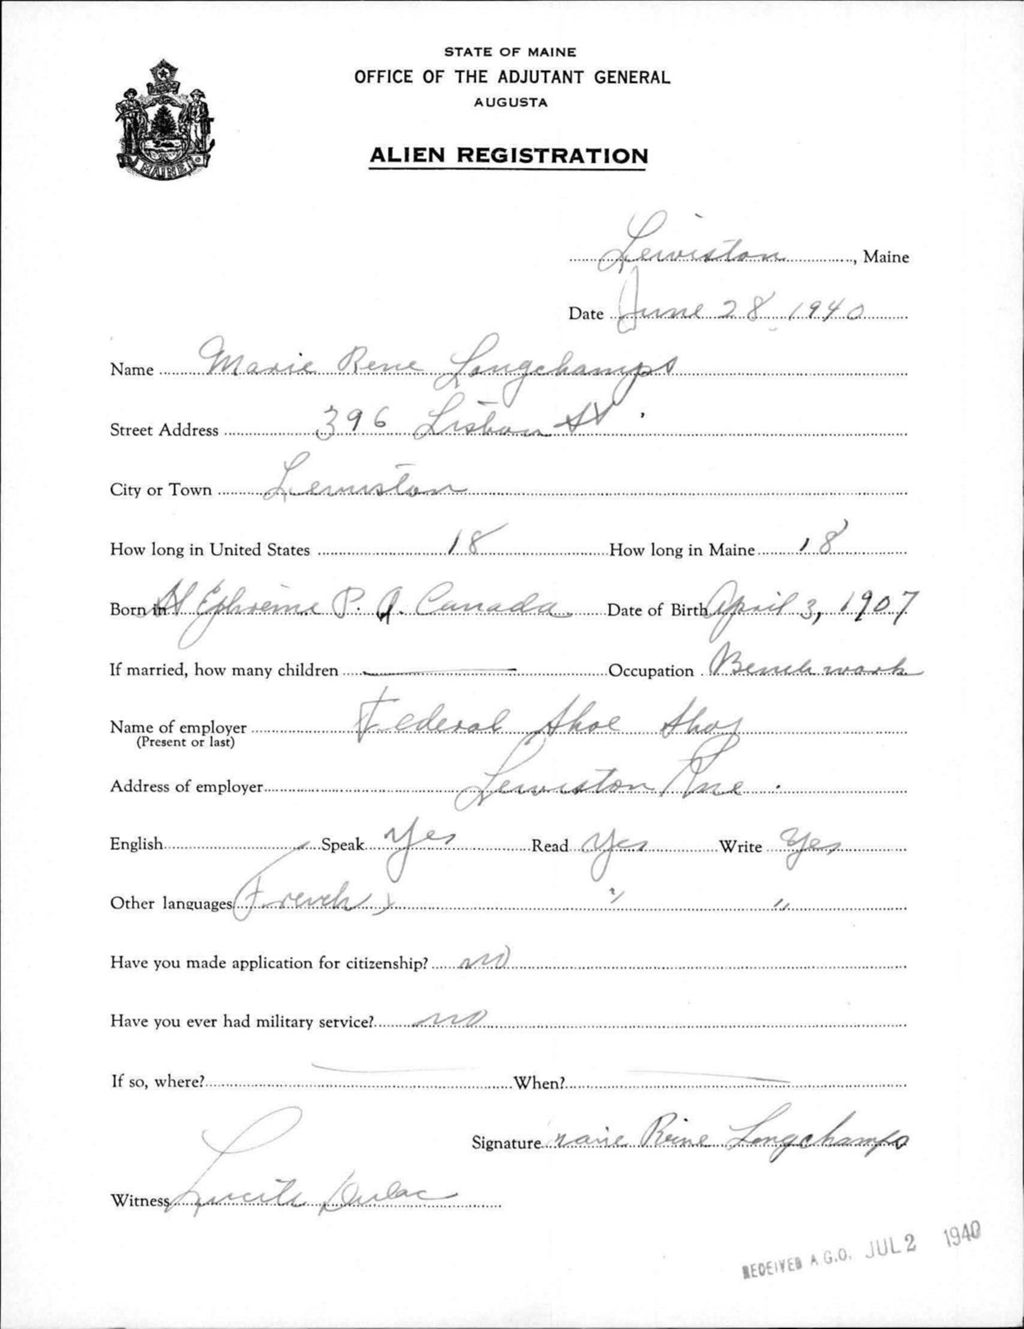 STATE OF MAINE
OFFICE OF THE ADJUTANT GENERAL
AUGUSTA
ALIEN REGISTRATION
MAINE
Lewiston, Maine
Date June 28, 1940
Name Marie Rene Longchamps
Street Address 396 Lisbon St.
City or Town Lewiston
How long in United States 18 How long in Maine 18
Born in St Ephrem P. Q. Canada Date of Birth April 3, 1907
If married, how many children — Occupation Bench work
Name of employer Federal Shoe Shop
(Present or last)
Address of employer Lewiston Me.
English Speak Yes Read Yes Write Yes
Other languages French " "
Have you made application for citizenship? no
Have you ever had military service? no
If so, where? — When? —
Signature Marie Reine Longchamps
Witness Dulac
RECEIVED A.G.O. JUL 2 1940